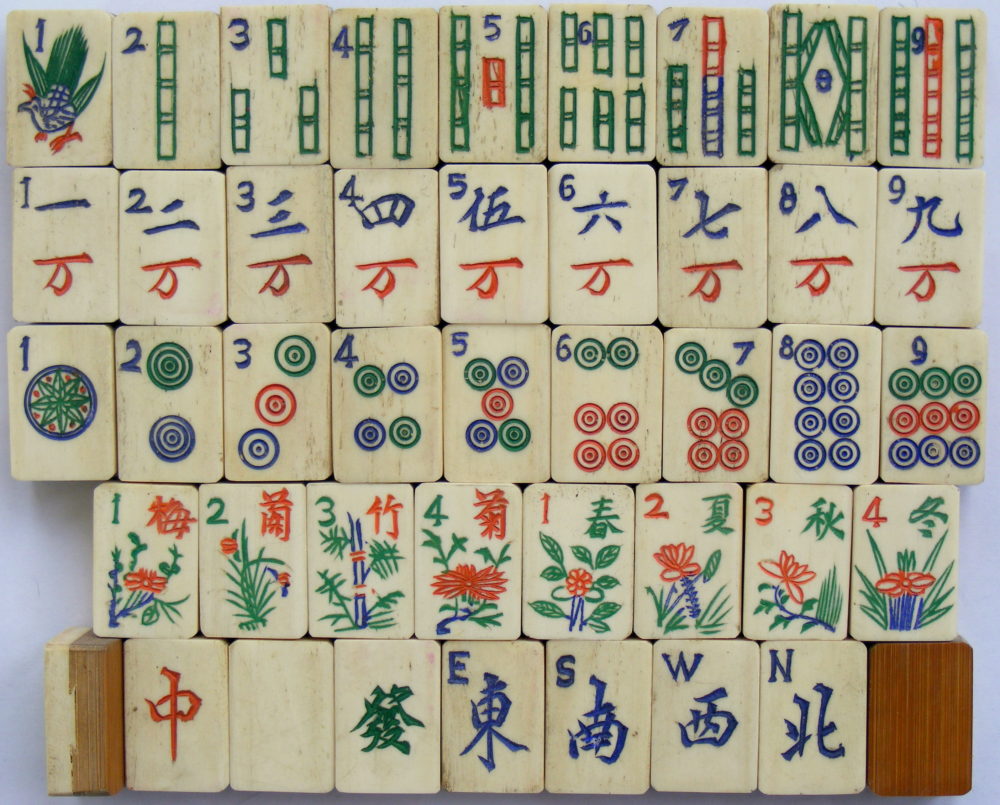 1 2 3 4 5 6 7 8 9
1 2 3 4 5 6 7 8 9
一 二 三 四 伍 六 七 八 九
万 万 万 万 万 万 万 万 万
1 2 3 4 5 6 7 8 9
1 梅 2 蘭 3 竹 4 菊 1 春 2 夏 3 秋 4 冬
E S W N
中 發 東 南 西 北